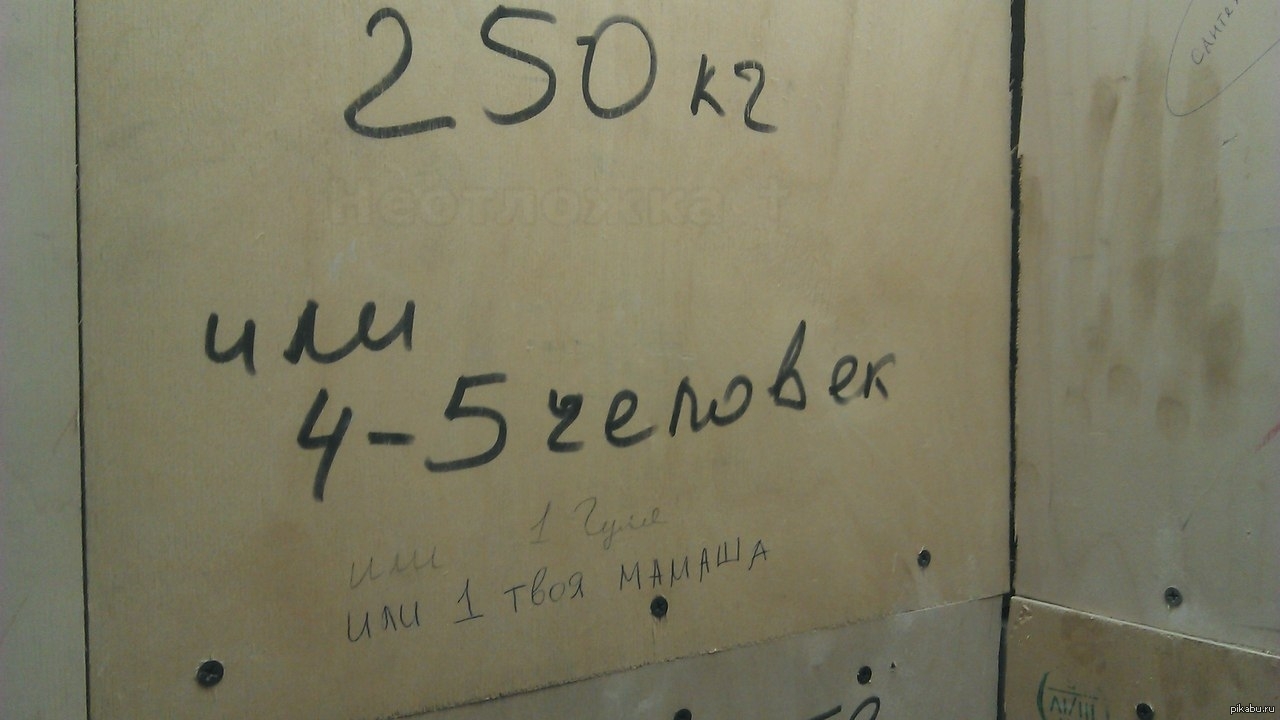 250 кг
Неотложка
или
4-5 человек
или 1 Гуля
или 1 твоя МАМАША
pikabu.ru